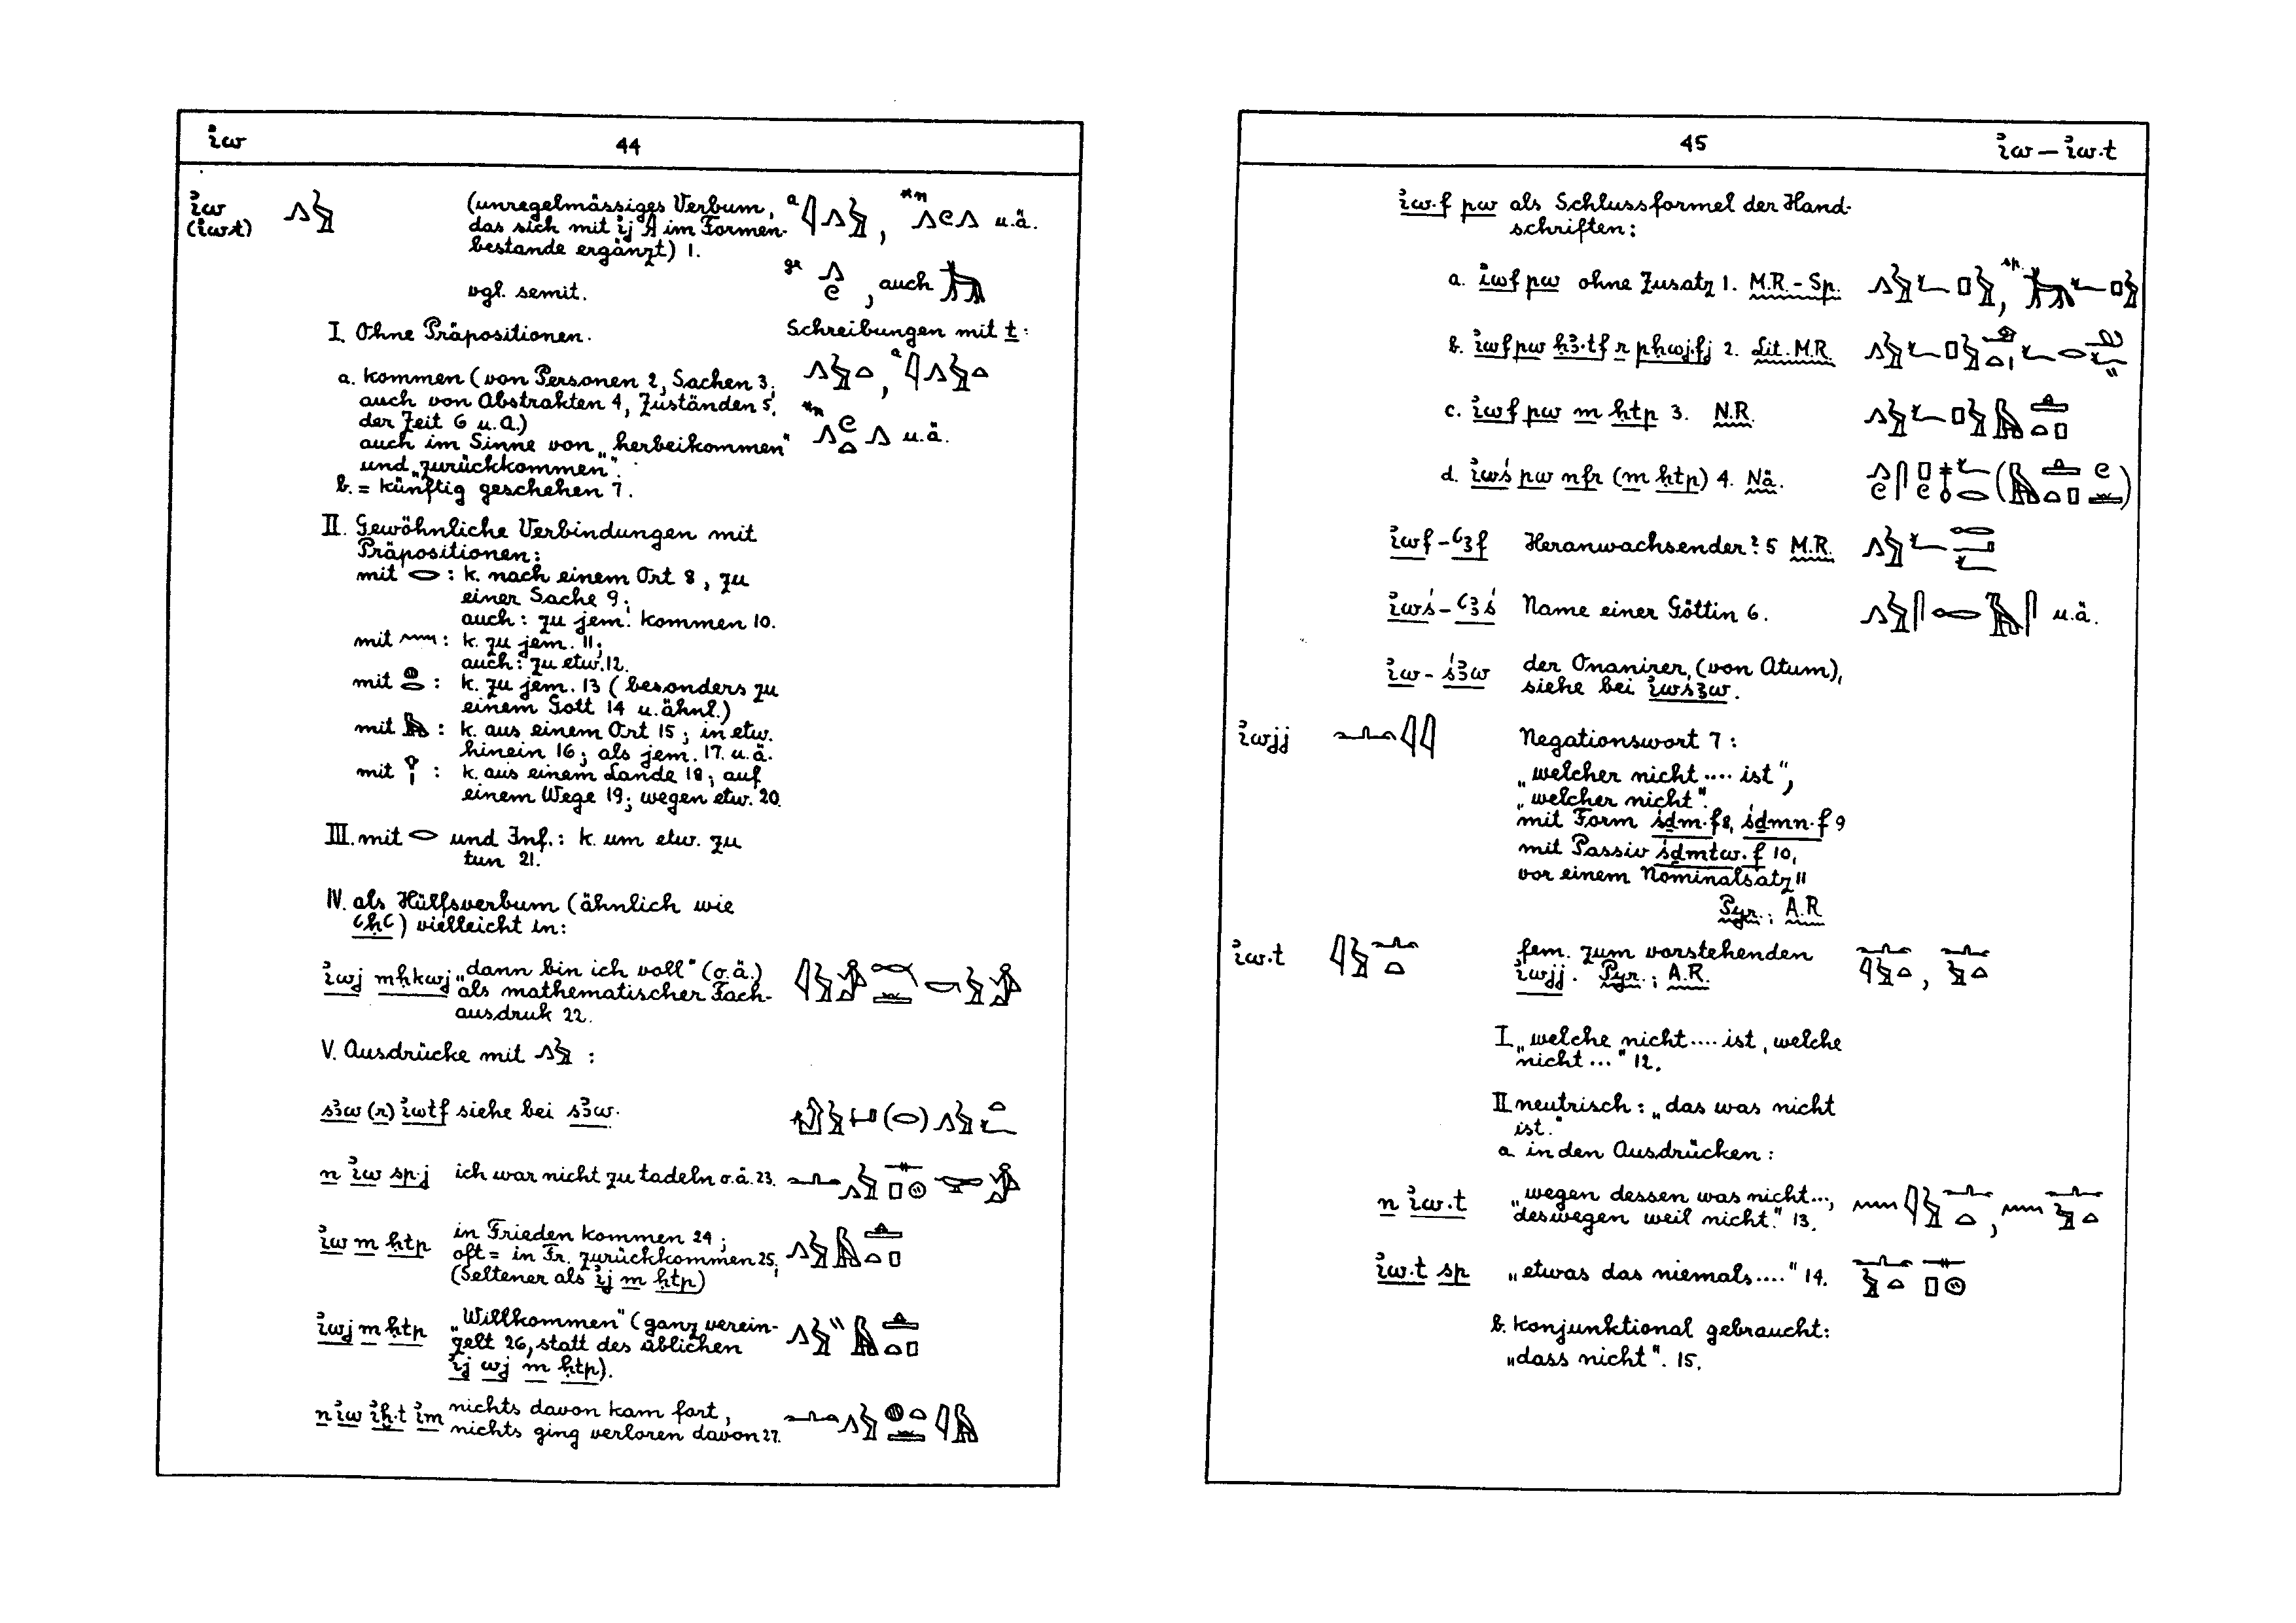 iw 44
iw (unregelmässiges Verbum,
(iw.t) das sich mit ij im Formen-
bestande ergänzt) 1.
vgl. semit.
u.ä.
, auch
I. Ohne Präpositionen.
Schreibungen mit t:
a. kommen (von Personen 2, Sachen 3;
auch von Abstrakten 4, Zuständen 5,
der Zeit 6 u.a.)
auch im Sinne von „herbeikommen"
und „zurückkommen".
u.ä.
b. = künftig geschehen 7.
II. Gewöhnliche Verbindungen mit
Präpositionen:
mit 𓂋 : k. nach einem Ort 8, zu
einer Sache 9;
auch: zu jem. kommen 10.
mit 𓈖 : k. zu jem. 11;
auch: zu etw. 12.
mit 𓐍𓂋 : k. zu jem. 13 (besonders zu
einem Gott 14 u. ähnl.)
mit 𓅓 : k. aus einem Ort 15; in etw.
hinein 16; als jem. 17. u.ä.
mit 𓁷𓏤 : k. aus einem Lande 18; auf
einem Wege 19; wegen etw. 20.
III. mit 𓂋 und Inf.: k. um etw. zu
tun 21.
IV. als Hülfsverbum (ähnlich wie
ꜥḥꜥ) vielleicht in:
iwj mḥkwj „dann bin ich voll" (o.ä.)
als mathematischer Fach-
ausdruk 22.
V. Ausdrücke mit 𓂻𓅱 :
sꜣw (r) iwtf siehe bei sꜣw.
n iw sp.j ich war nicht zu tadeln o.ä. 23.
iw m ḥtp in Frieden kommen 24;
oft = in Fr. zurückkommen 25;
(Seltener als ij m ḥtp)
iwj m ḥtp „Willkommen" (ganz verein-
zelt 26, statt des üblichen
ij wj m ḥtp).
n iw iḫ.t im nichts davon kam fort,
nichts ging verloren davon 27.
45 iw — iw.t
iw.f pw als Schlussformel der Hand-
schriften:
a. iwf pw ohne Zusatz 1. M.R. - Sp.
b. iwf pw ḥꜣ.tf r pḥwj.fj 2. Lit. M.R.
c. iwf pw m ḥtp 3. N.R.
d. iwś pw nfr (m ḥtp) 4. Nä.
iwf-ꜥꜣf Heranwachsender? 5 M.R.
iwś-ꜥꜣś Name einer Göttin 6. u.ä.
iw-śꜣw der Onanirer, (von Atum),
siehe bei iwsꜣw.
iwjj 𓂜𓇋𓇋 Negationswort 7:
„welcher nicht .... ist",
„welcher nicht".
mit Form śḏm.f 8, śḏmn.f 9
mit Passiv śḏmtw.f 10,
vor einem Nominalsatz 11
Pyr.; A.R
iw.t fem. zum vorstehenden
iwjj. Pyr.; A.R.
I. „welche nicht .... ist, welche
nicht ..." 12.
II neutrisch: „das was nicht
ist."
a in den Ausdrücken:
n iw.t „wegen dessen was nicht...,
deswegen weil nicht." 13.
iw.t sp „etwas das niemals...." 14.
b. konjunktional gebraucht:
„dass nicht". 15.